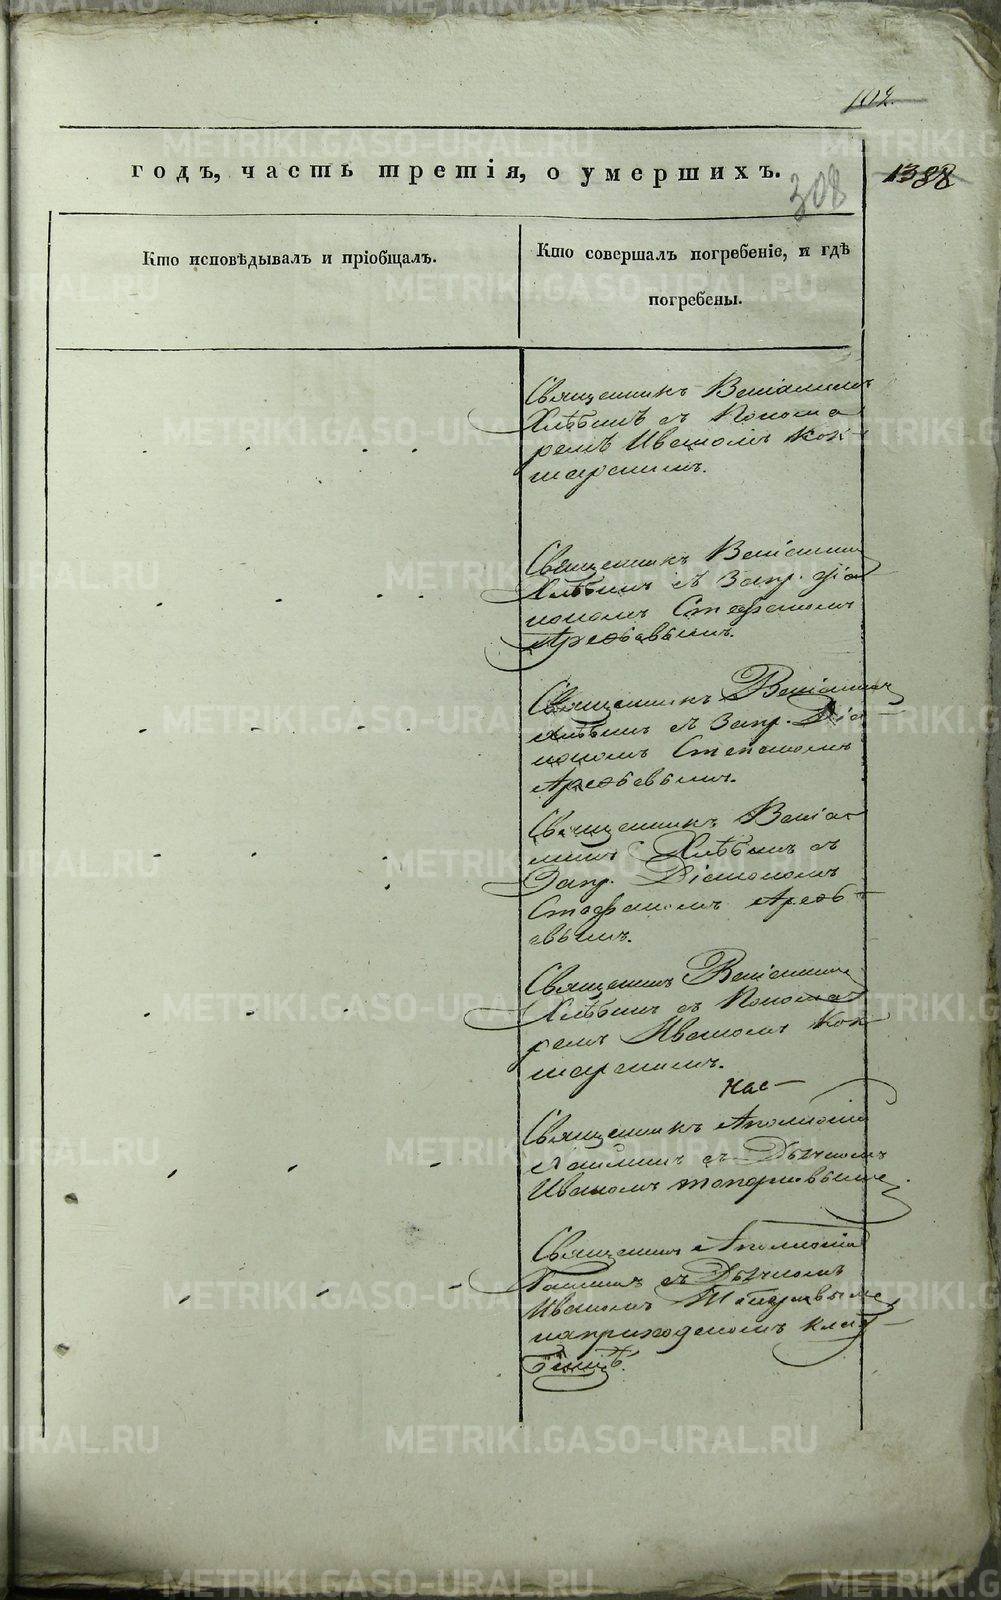 102.
годъ, часть третія, о умершихъ.
308
1388
Кто исповѣдывалъ и пріобщалъ.
Кто совершалъ погребеніе, и гдѣ
погребены.
Священникъ Веніаминъ
Хлѣбинъ съ Понома
ремъ Иваномъ Кок
шарскимъ.
Священникъ Веніаминъ
Хлѣбинъ съ Запр. діа
кономъ Стефаномъ
Арефьевымъ.
Священникъ Веніаминъ
Хлѣбинъ съ Запр. Діа
кономъ Степаномъ
Арефьевымъ.
Священникъ Веніа
минъ Хлѣбинъ съ
Запр. Діакономъ
Стефаномъ Арефь
евымъ.
Священникъ Веніаминъ
Хлѣбинъ съ Понома
ремъ Иваномъ Кок
шарскимъ.
Священникъ Аполлоній
съ Дьячкомъ
Иваномъ Топорковымъ.
Священникъ Аполлоній
съ Дьячкомъ
Иваномъ
на приходскомъ клад
бищѣ.
METRIKI.GASO-URAL.RU